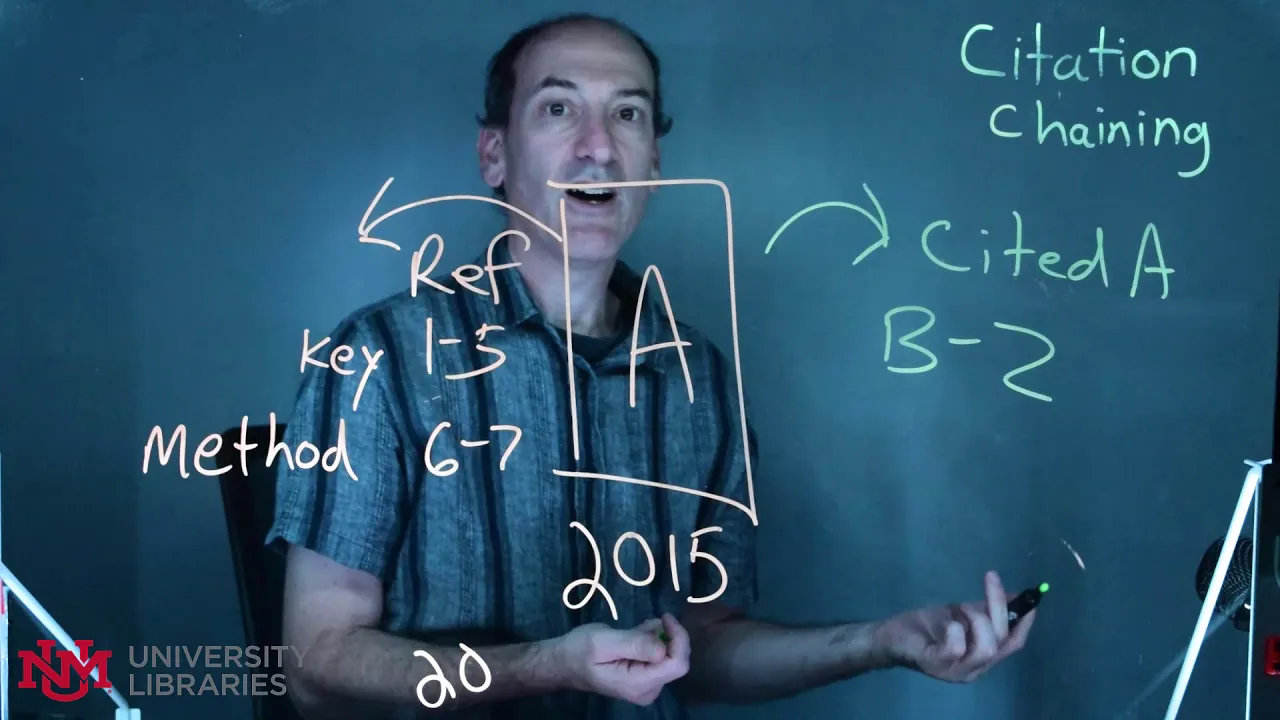 Citation
Chaining
Ref
Key 1-5
Method 6-7
A
2015
20
Cited A
B-Z
UNM UNIVERSITY
LIBRARIES